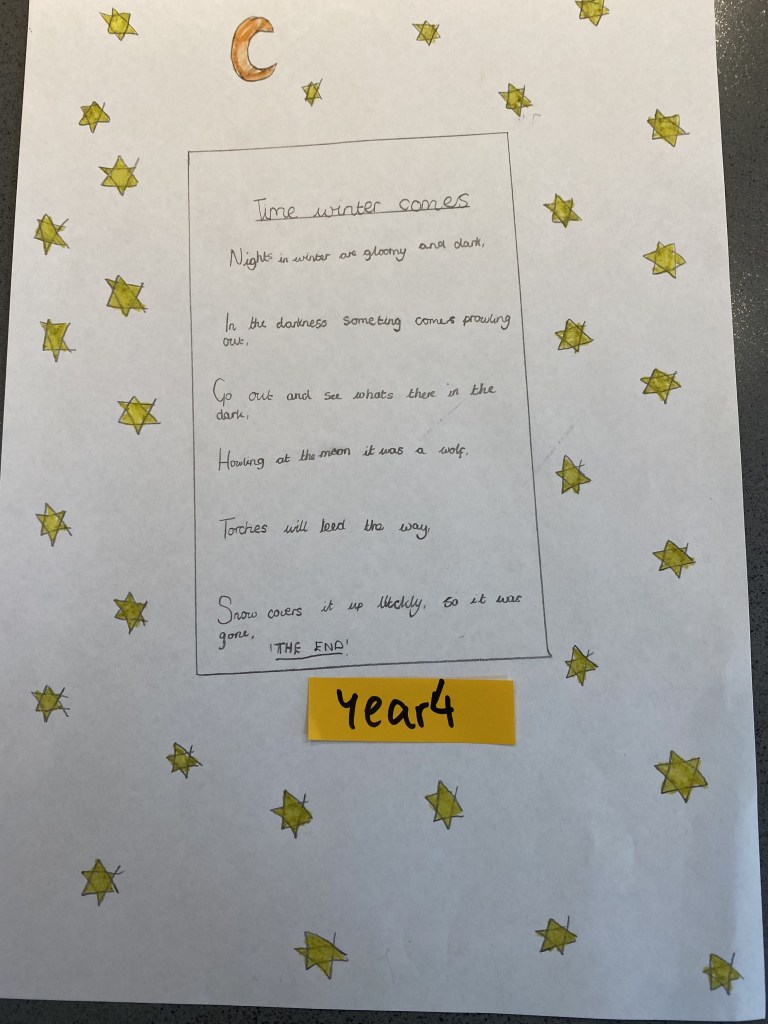 Time winter comes
Nights in winter are gloomy and dark,
In the darkness someting comes prowling
out,
Go out and see whats there in the
dark,
Howling at the moon it was a wolf,
Torches will leed the way,
Snow covers it up so it was
gone,
'THE END'
Year4